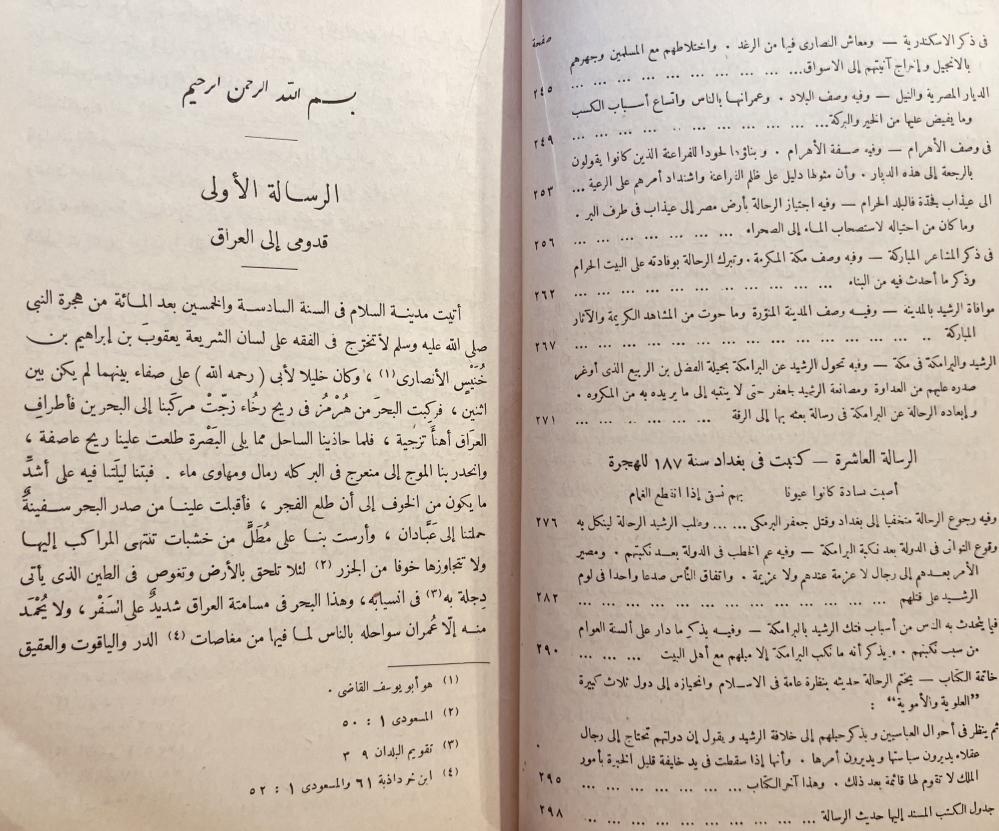 صفحة
فى ذكر الاسكندرية — ومعاش النصارى فيها من الرغد . واختلاطهم مع المسلمين وجهرهم
بالانجيل وإخراج آنيتهم إلى الاسواق... ... ... ... ... ... ... ... ... ٢٤٥
الديار المصرية والنيل — وفيه وصف البلاد . وعمرانها بالناس واتساع أسباب الكسب
وما يفيض عليها من الخير والبركة... ... ... ... ... ... ... ... ... ٢٤٩
فى وصف الأهرام — وفيه صفة الأهرام . وبناؤها لحودا للفراعنة الذين كانوا يقولون
بالرجعة إلى هذه الديار . وأن مثولها دليل على ظلم الفراعنة واشتداد أمرهم على الرعية ... ٢٥٣
الى عيذاب فجدّة فالبلد الحرام — وفيه اجتياز الرحالة بأرض مصر إلى عيذاب فى طرف البر .
وما كان من احتياله لاستصحاب الماء إلى الصحراء ... ... ... ... ... ... ٢٥٦
فى ذكر المشاعر المباركة — وفيه وصف مكة المكرمة . وتبرك الرحالة بوفادته على البيت الحرام
وذكر ما أحدث فيه من البناء ... ... ... ... ... ... ... ... ... ٢٦٢
موافاة الرشيد بالمدينه — وفيه وصف المدينة المنوّرة وما حوت من المشاهد الكريمة والآثار
المباركة ... ... ... ... ... ... ... ... ... ... ... ... ... ٢٦٧
الرشيد والبرامكة فى مكة — وفيه تحول الرشيد عن البرامكة بحيلة الفضل بن الربيع الذى أوغر
صدره عليهم من العداوة ومصانعة الرشيد لجعفر حتى لا ينتبه إلى ما يريده به من المكروه .
وإبعاده الرحالة عن البرامكة فى رسالة بعثه بها إلى الرقة ... ... ... ... ... ٢٧١
الرسالة العاشرة — كتبت فى بغداد سنة ١٨٧ للهجرة
أصبت بسادة كانوا عيونا بهم نسقى إذا انقطع الغمام
وفيه رجوع الرحالة متخفيا إلى بغداد وقتل جعفر البرمكى ... ... وطلب الرشيد الرحالة لينكل به ٢٧٦
وقوع التوانى فى الدولة بعد نكبة البرامكة — وفيه عم الخطب فى الدولة بعد نكبتهم . ومصير
الأمر بعدهم إلى رجال لا عزمة عندهم ولا عزيمة . واتفاق الناس صدعا واحدا فى لوم
الرشيد على قتلهم ... ... ... ... ... ... ... ... ... ... ٢٨٢
فيما يتحدث به الناس من أسباب فتك الرشيد بالبرامكة — وفيه يذكر ما دار على ألسنة العوام
من سبب نكبتهم . ويذكر أنه ما نكب البرامكة إلا ميلهم مع أهل البيت ... ... ... ٢٩٠
خاتمة الكتاب — يختم الرحالة حديثه بنظارة عامة فى الاسلام وانحيازه إلى دول ثلاث كبيرة
"العلوية والأموية" :
ثم ينظر فى أحوال العباسيين ويذكر حيلهم إلى خلافة الرشيد ويقول إن دولتهم تحتاج إلى رجال
عقلاء يديرون سياستها ويديرون أمرها . وأنها إذا سقطت فى يد خليفة قليل الخبرة بأمور
الملك لا تقوم لها قائمة بعد ذلك . وهذا آخر الكتاب... ... ... ... ... ... ٢٩٥
جدول الكتب المسند إليها حديث الرسالة ... ... ... ... ... ... ... ... ٢٩٨
بسم الله الرحمن الرحيم
الرسالة الأولى
قدومى إلى العراق
أتيت مدينة السلام فى السنة السادسة والخمسين بعد المائة من هجرة النبى
صلى الله عليه وسلم لأتخرّج فى الفقه على لسان الشريعة يعقوبَ بن إبراهيم بن
خُنَيْس الأنصارى(١) ، وكان خليلا لأبى ( رحمه الله ) على صفاء بينهما لم يكن بين
اثنين ، فركِبت البحرَ من هُرْمُزَ فى ريح رخُاء زجّتْ مركَبنا إلى البحرين فأطرافِ
العرَاق أهنأَ تَزْجية ، فلما حاذينا الساحل مما يلى البَصْرة طلعت علينا ريح عاصفة ،
وانحدر بنا الموج إلى منعرج فى البر كله رمال ومهاوى ماء . فبتنا ليلَتنا فيه على أشدِّ
ما يكون من الخوف إلى أن طلع الفجر ، فأقبلت علينا من صدر البحر سفينةٌ
حملتنا إلى عَبَّادان ، وأرست بنا على مُطَلٍّ من خشبات تنتهى المراكب إليها
ولا تتجاوزها خوفا من الجزر (٢) لئلا تلحق بالأرض وتغوص فى الطين الذى يأتى
دِجلة به(٣) فى انسيابه، وهذا البحر فى مسامتة العراق شديدٌ على السَفْر ، ولا يُحْمَد
منه إلّا عُمران سواحله بالناس لما فيها من مغاصات (٤) الدر والياقوت والعقيق
(١) هو أبو يوسف القاضى .
(٢) المسعودى ١ : ٥٠
(٣) تقويم البلدان ٩ ٣
(٤) ابن خرداذبة ٦١ والمسعودى ١ : ٥٢